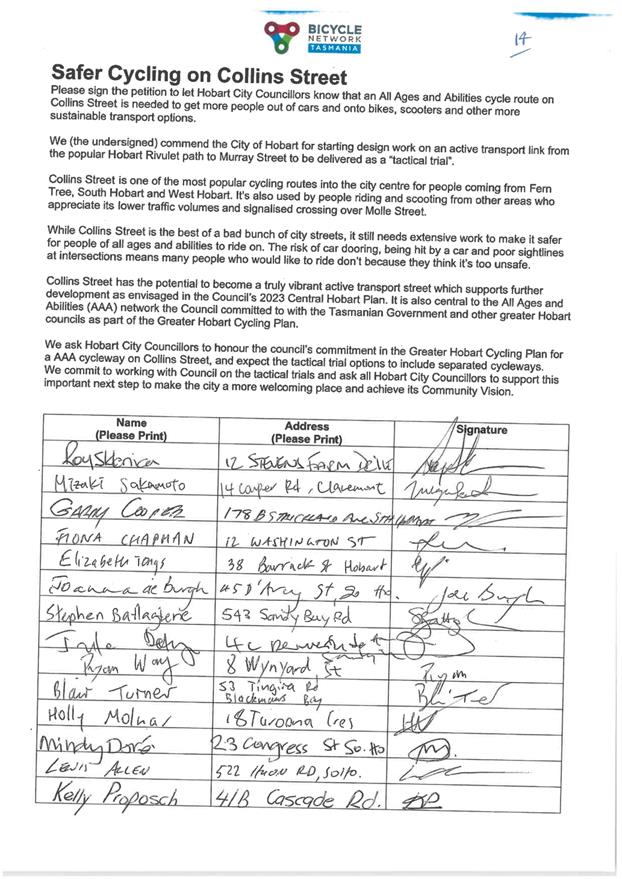 BICYCLE
NETWORK
TASMANIA
14
Safer Cycling on Collins Street
Please sign the petition to let Hobart City Councillors know that an All Ages and Abilities cycle route on
Collins Street is needed to get more people out of cars and onto bikes, scooters and other more
sustainable transport options.
We (the undersigned) commend the City of Hobart for starting design work on an active transport link from
the popular Hobart Rivulet path to Murray Street to be delivered as a "tactical trial".
Collins Street is one of the most popular cycling routes into the city centre for people coming from Fern
Tree, South Hobart and West Hobart. It's also used by people riding and scooting from other areas who
appreciate its lower traffic volumes and signalised crossing over Molle Street.
While Collins Street is the best of a bad bunch of city streets, it still needs extensive work to make it safer
for people of all ages and abilities to ride on. The risk of car dooring, being hit by a car and poor sightlines
at intersections means many people who would like to ride don't because they think it's too unsafe.
Collins Street has the potential to become a truly vibrant active transport street which supports further
development as envisaged in the Council's 2023 Central Hobart Plan. It is also central to the All Ages and
Abilities (AAA) network the Council committed to with the Tasmanian Government and other greater Hobart
councils as part of the Greater Hobart Cycling Plan.
We ask Hobart City Councillors to honour the council's commitment in the Greater Hobart Cycling Plan for
a AAA cycleway on Collins Street, and expect the tactical trial options to include separated cycleways.
We commit to working with Council on the tactical trials and ask all Hobart City Councillors to support this
important next step to make the city a more welcoming place and achieve its Community Vision.
Name Address Signature
(Please Print) (Please Print)
12 STEVENS FARM DRIVE
Mizaki Sakamoto 14 Cooper Rd, Claremont
GARRY COOPER 178B STRICKLAND AVE STH HOBART
FIONA CHAPMAN 12 WASHINGTON ST
Elizabeth 38 Barrack St Hobart
Joanna de Burgh 45 D'Arcy St, So Ho. Joe Burgh
Stephen 543 Sandy Bay Rd
4c
Ryan Way 8 Wynyard St Ryan
Blair Turner 53 Tingira Rd
Blackmans Bay
Holly Molnar 18 Taroona Cres
Mindy 23 Congress St So. Ho
LEWIS ALLEN 522 HUON RD, SOHO.
Kelly Proposch 41B Cascade Rd. KP